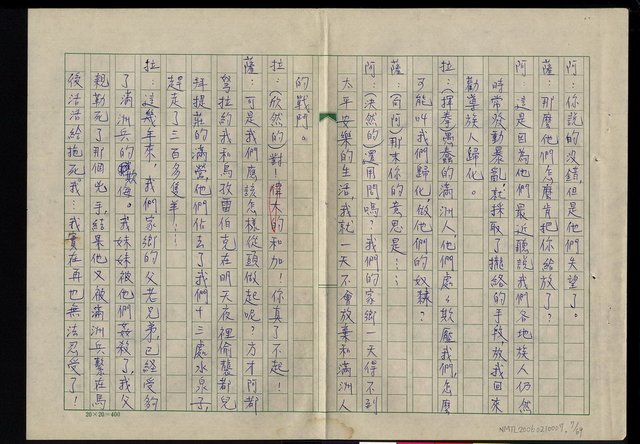 阿:你說的沒錯,但是他們失望了。
薩:那麼他們怎麼肯把你給放了?
阿:這是因為他們最近聽說我們各地族人仍然
時常發動暴亂,就採取了攏絡的手段放我回來
勸導族人歸化。
拉:(揮拳)愚蠢的滿洲人,他們處々欺壓我們,怎麼
可能叫我們歸化,做他們的奴隸?
薩:(向阿)那末你的意思是:⋯
阿:(決然的)還用問嗎?我們的家鄉一天得不到
太平安樂的生活,我就一天不會放棄和滿洲人
的戰鬥。
拉:(欣然的)對!偉大的和加!你真了不起!
薩:可是我們應該怎樣從頭做起呢?方才阿都
弩拉約我和烏孜雷伯克在明天夜裡偷襲都兒
拜提莊的滿營,他們佔去了我們十三處水泉子,
趕走了三百多隻羊!⋯
拉:這幾年來,我們家鄉的父老兄弟,已經受夠
了滿洲兵的欺侮。我妹妹被他們姦殺了,我父
親勒死了那個兇手,結果他又被滿洲兵繫在馬
後活活給拖死,我⋯我實在再也無法忍受了!
20×20=400
NMTL20060210007 7/69